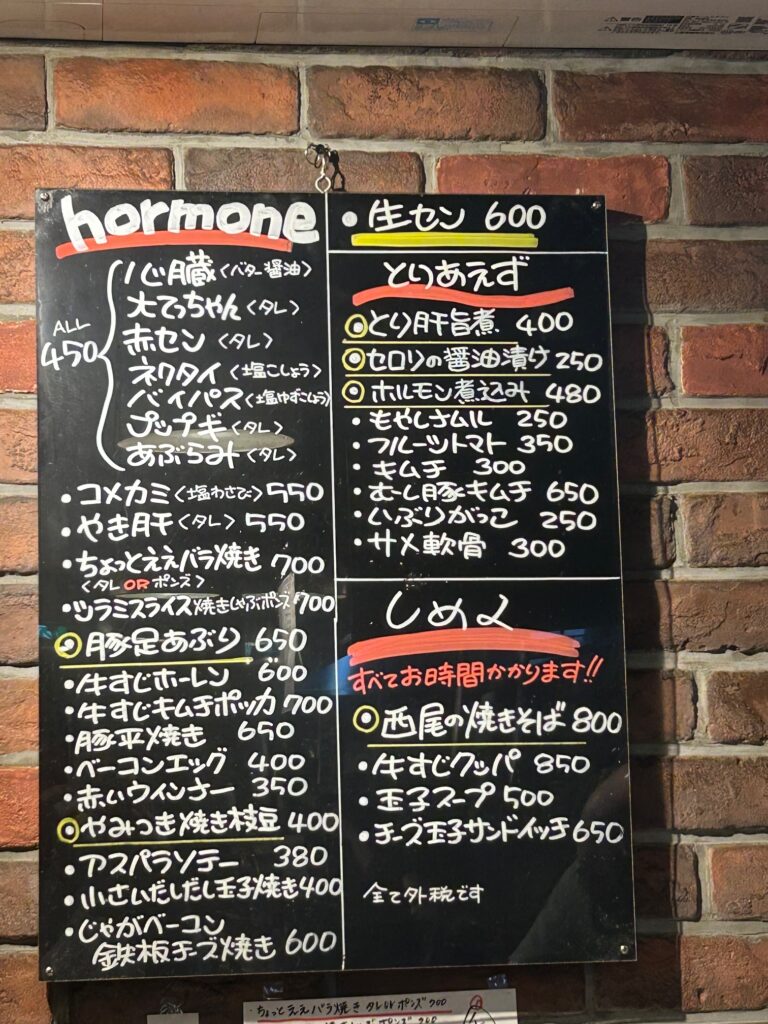 hormone
ALL
450
心臓〈バター醤油〉
大てっちゃん〈タレ〉
赤セン〈タレ〉
ネクタイ〈塩こしょう〉
バイパス〈塩ゆずこしょう〉
プップギ〈タレ〉
あぶらみ〈タレ〉
・コメカミ〈塩わさび〉550
・やき肝〈タレ〉550
・ちょっとええバラ焼き 700
〈タレORポンズ〉
・ツラミスライス焼きしゃぶポンズ700
◎豚足あぶり 650
・牛すじホーレン 600
・牛すじキムチポッカ700
・豚平焼き 650
・ベーコンエッグ 400
・赤いウインナー 350
◎やみつき焼き枝豆 400
・アスパラソテー 380
・小さいだしだし玉子焼き400
・じゃがベーコン
鉄板チーズ焼き 600
・生セン 600
とりあえず
◎とり肝旨煮 400
◎セロリの醤油漬け 250
◎ホルモン煮込み 480
・もやしナムル 250
・フルーツトマト 350
・キムチ 300
・むし豚キムチ 650
・いぶりがっこ 250
・サメ軟骨 300
しめ〆
すべてお時間かかります!!
◎西尾の焼きそば 800
・牛すじクッパ 850
・玉子スープ 500
・チーズ玉子サンドイッチ 650
全て外税です
・ちょっとええバラ焼き タレorポンズ 700